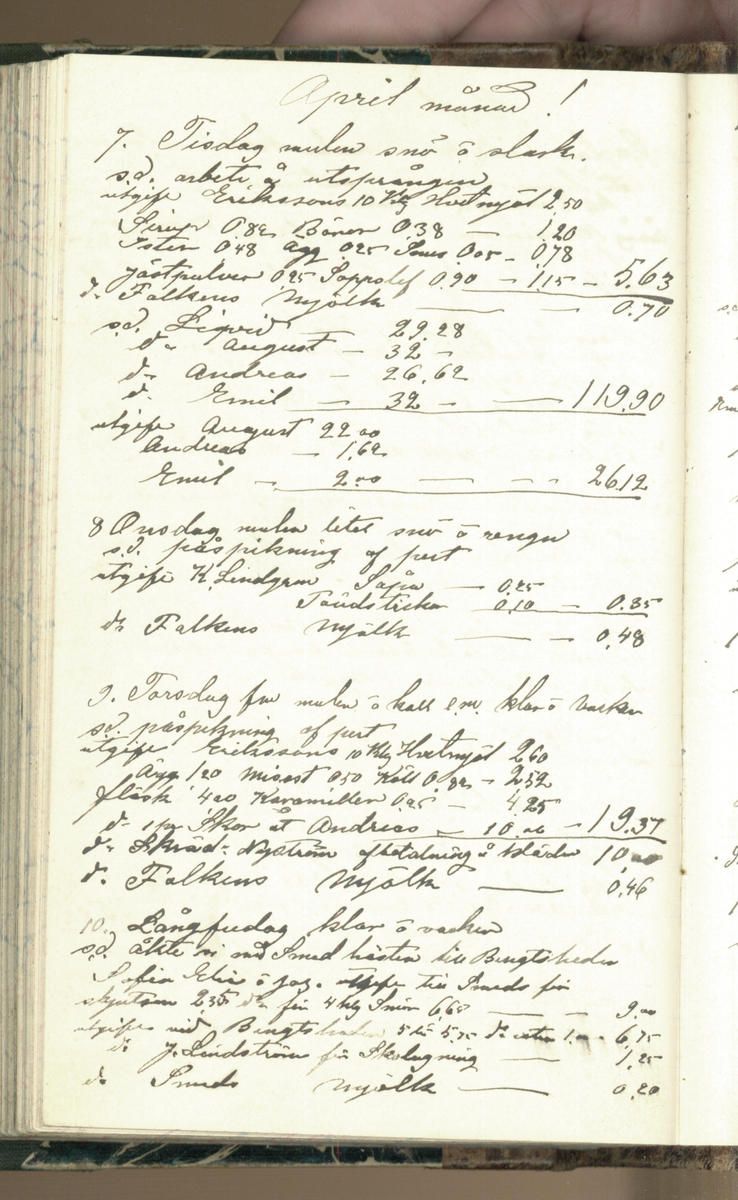 April månad!
7. Tisdag mulen snö ö slask.
s.d. arbete å utsprången
utgift Erikssons 10 Kg Hvetmjöl 2,50
Sirup 0.82 Bönor 0.38 — 1.20
Ister 0.48 Ägg 0.25 Snus 0.05 - 0.78
Jästpulver 0.25 0.90 — 1.15 — 5.63
do Falkens Mjölk — — 0.70
s.d. Liqvid — 29.28
do August — 32 -
do Andreas — 26.62
do Emil — 32 — — 119.90
utgift August 22.00
Andreas — 1,62
Emil — 2.00 — — 26.12
8 Onsdag mulen litet snö ö rengn
s.d. påspikning af pert
utgift K. Lindgren Såpa — 0.25
Tändstickor 0.10 — 0.35
do Falkens Mjölk — — 0.48
9. Torsdag fm mulen ö kall e.m. klar ö vacker
s.d. påspikning af pert
utgift Erikssons 10 Kg Hvetmjöl 2.60
Ägg 1.20 Misost 0.50 Kött 0.82 - 2.52
fläsk 4.00 Karameller 0.25 — 4.25
do 1 par Skor åt Andreas — 10.00 — 19.37
do Skräd. Nyström afbetalning å kläder 10.00
do Falkens Mjölk — 0.46
10. Långfredag klar ö vacker
s.d. åkte vi med Smeds hästen till Bengtsheden
Sofia Elis ö jag. utgift till Smeds för
skjutsen 2,35 do för 4 kg Smör 6,68 — — 9.00
utgift vid Bengtsheden 5 5,75 do extra 1.00 - 6,75
do J. Lindström för Skolagning — 1,25
do Smeds Mjölk — 0.20